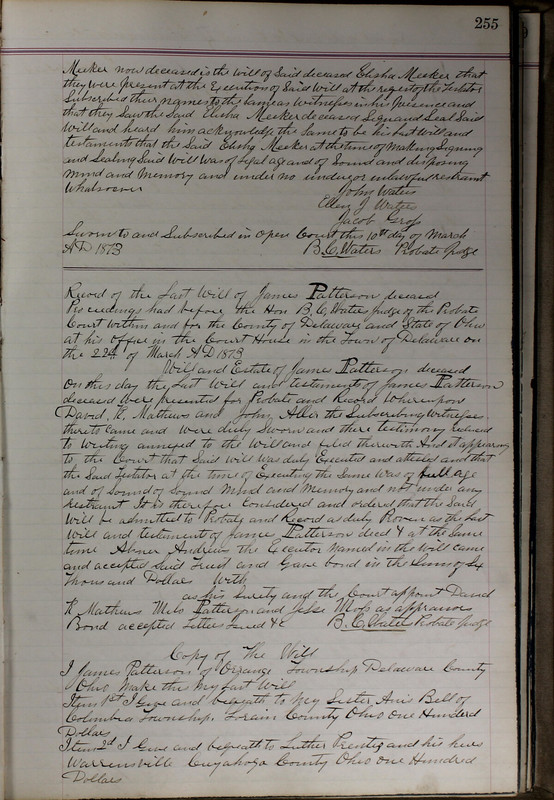 255
Meeker now deceased is the will of Said deceased Elisha Meeker that
they were present at the Execution of Said Will at the request of the Testator
Subscribed their names to the Same as Witnesses in his presence and
that they Saw the Said Elisha Meeker deceased Sign and Seal Said
Will and heard him acknowledge the Same to be his last Will and
testament that the Said Elisha Meeker at the time of Making Signing
and Sealing Said Will Was of legal age and of Sound and disposing
Mind and Memory and under no undue or unlawful restraint
Whatsoever
John Waters
Ellen J Waters
Jacob Gross
Sworn to and Subscribed in Open Court this 10th day of March
AD 1873 B.C. Waters Probate Judge
Record of the Last Will of James Patterson deceased
Proceedings had before the Hon B. C. Waters Judge of the Probate
Court Within and for the County of Delaware and State of Ohio
at his Office in the Court House in the Town of Delaware on
the 22d of March AD 1873
Will and Estate of James Patterson deceased
On this day the Last Will and testament of James Patterson
deceased Were presented for Probate and Record Whereupon
David K. Mathews and John the Subscribing Witnesses
thereto Came and Were duly Sworn and there testimony reduced
to Writing annexed to the Will and filed therewith And it appearing
to the Court that Said Will Was duly Executed and attested and that
the Said Testator at the time of Executing the Same Was of full age
and of Sound of Sound Mind and Memory and not under any
restraint It is therefore Considered and ordered that the Said
Will be admitted to Probate and Record as duly Proven as the Last
Will and testament of James Patterson decd & at the Same
time Abner Andrews the Executor Named in the Will came
and accepted Said Trust and Gave bond in the Sum of Six
Thousand Dollars With
as his Surety and the Court appoint David
K Mathews Milo Patterson and Jesse Moss as appraisers
Bond accepted Letters issued &c B. C. Waters Probate Judge
Copy of The Will
I James Patterson of Orrange Township Delaware County
Ohio Make this My Last Will
Item 1st I Give and beqeath to My Sister Anis Bell of
Columbia Township, Lorain County Ohio One Hunderd
Dollars
Item 2d I Give and beqeath to Luther Prentis and his heirs
Warrensville Cuyahoga County Ohio one Hundred
Dollars